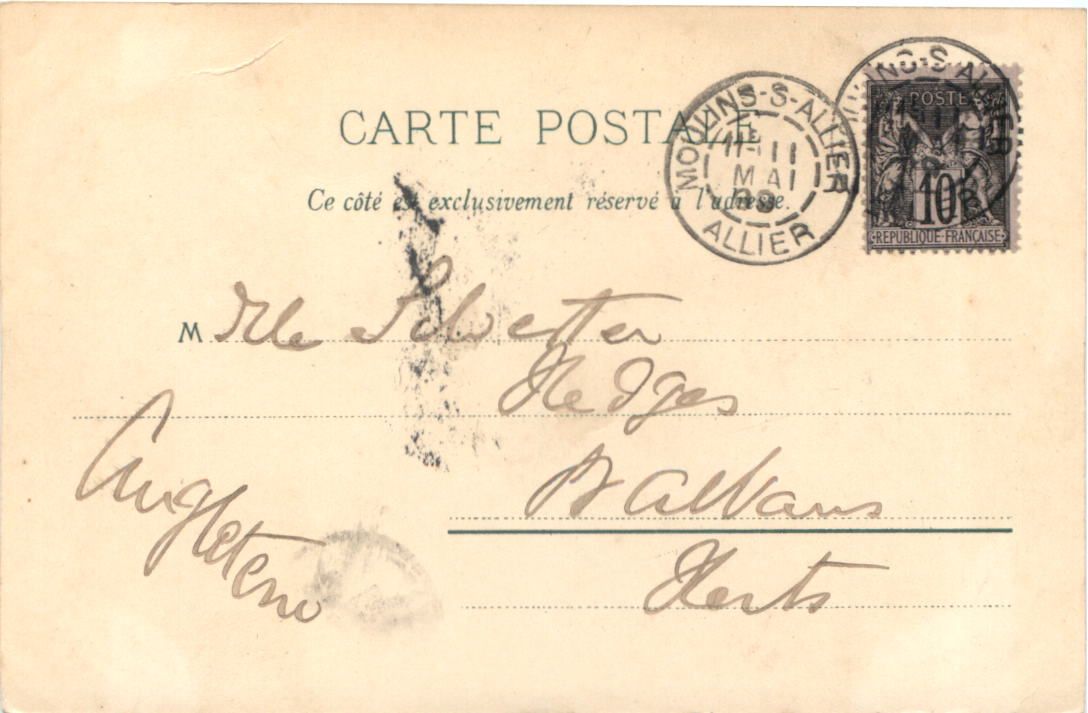 CARTE POSTALE
Ce côté est exclusivement réservé à l'adresse.
MOULINS-S-ALLIER
11
MAI
ALLIER
POSTE
10
REPUBLIQUE FRANÇAISE
M lle Silvester
Hedges
St Albans
Herts
Angleterre